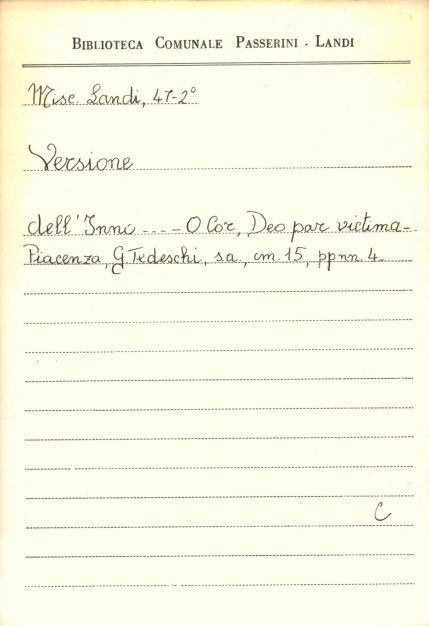 BIBLIOTECA COMUNALE PASSERINI - LANDI
Misc. Landi, 47-2°
Versione
dell'Inno ---- O Cor, Deo par victima-
Piacenza, G. Tedeschi, s.a., cm. 15, pp nn. 4.
C